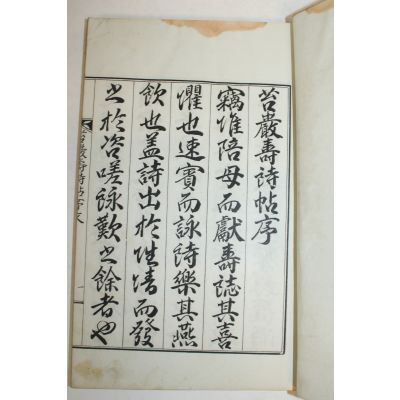 苔巖壽詩帖序
竊惟陪母而獻壽誌其喜
懼也速賓而詠詩樂其燕
飮也盖詩出於性情而發
之於咨嗟詠歎之餘者也